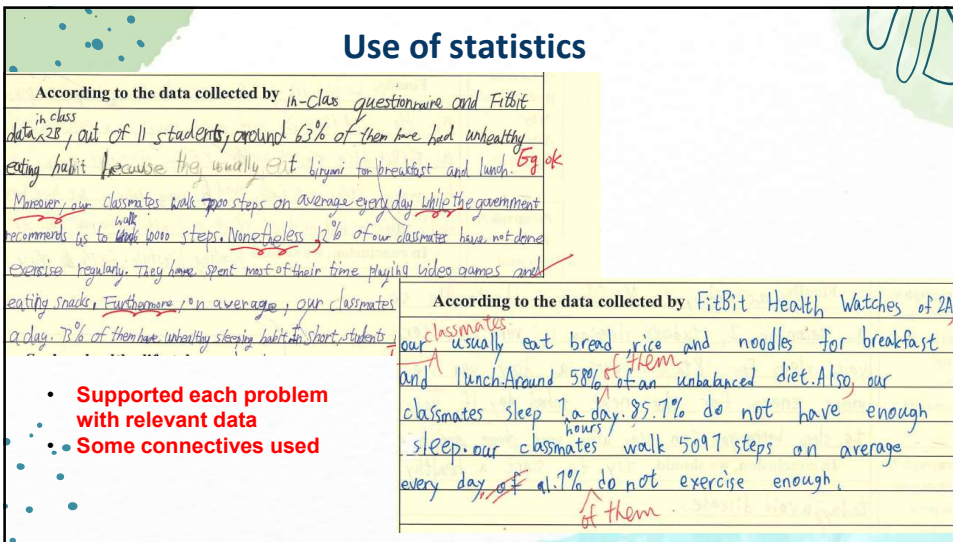 Use of statistics
According to the data collected by in-Class questionnaire and Fitbit
data in class 2B, out of 11 students, around 63% of them have had unhealthy
eating habit because they usually eat biryani for breakfast and lunch. Eg ok
Moreover, our classmates walk 7000 steps on average every day while the government
recommends us to walk 10000 steps. Nonetheless, % of our classmates have not done
exercise regularly. They have spent most of their time playing video games and
eating snacks. Furthermore, on average, our classmates
a day. 73% of them have unhealthy sleeping habit. In short, students
According to the data collected by FitBit Health Watches of 2A,
our classmates usually eat bread, rice and noodles for breakfast
and lunch. Around 58% of them of an unbalanced diet. Also, our
classmates sleep 7 hours a day. 85.7% do not have enough
sleep. our classmates walk 5097 steps on average
every day, of do not exercise enough.
of them.
• Supported each problem
with relevant data
• Some connectives used